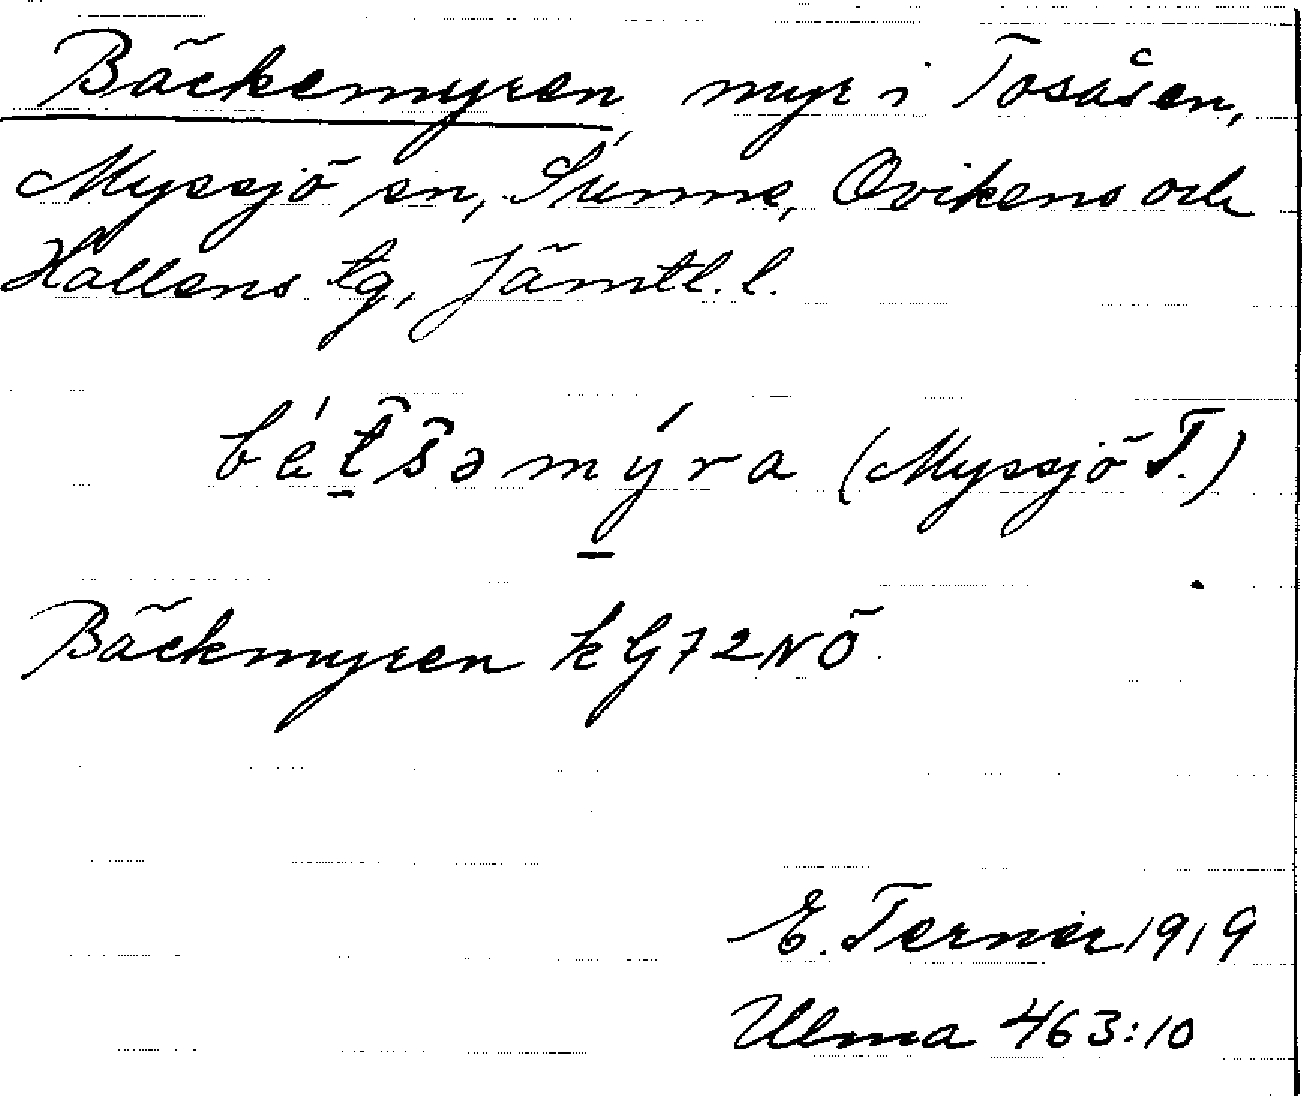 Bäckemyren, myr i Tosåsen,
Myssjö sn, Sunne, Ovikens och
Hallens tg, Jämtl. l.
bétšəmýra (Myssjö T.)
Bäckmyren k G 72 NÖ
E. Terner 1919
Ulma 463:10